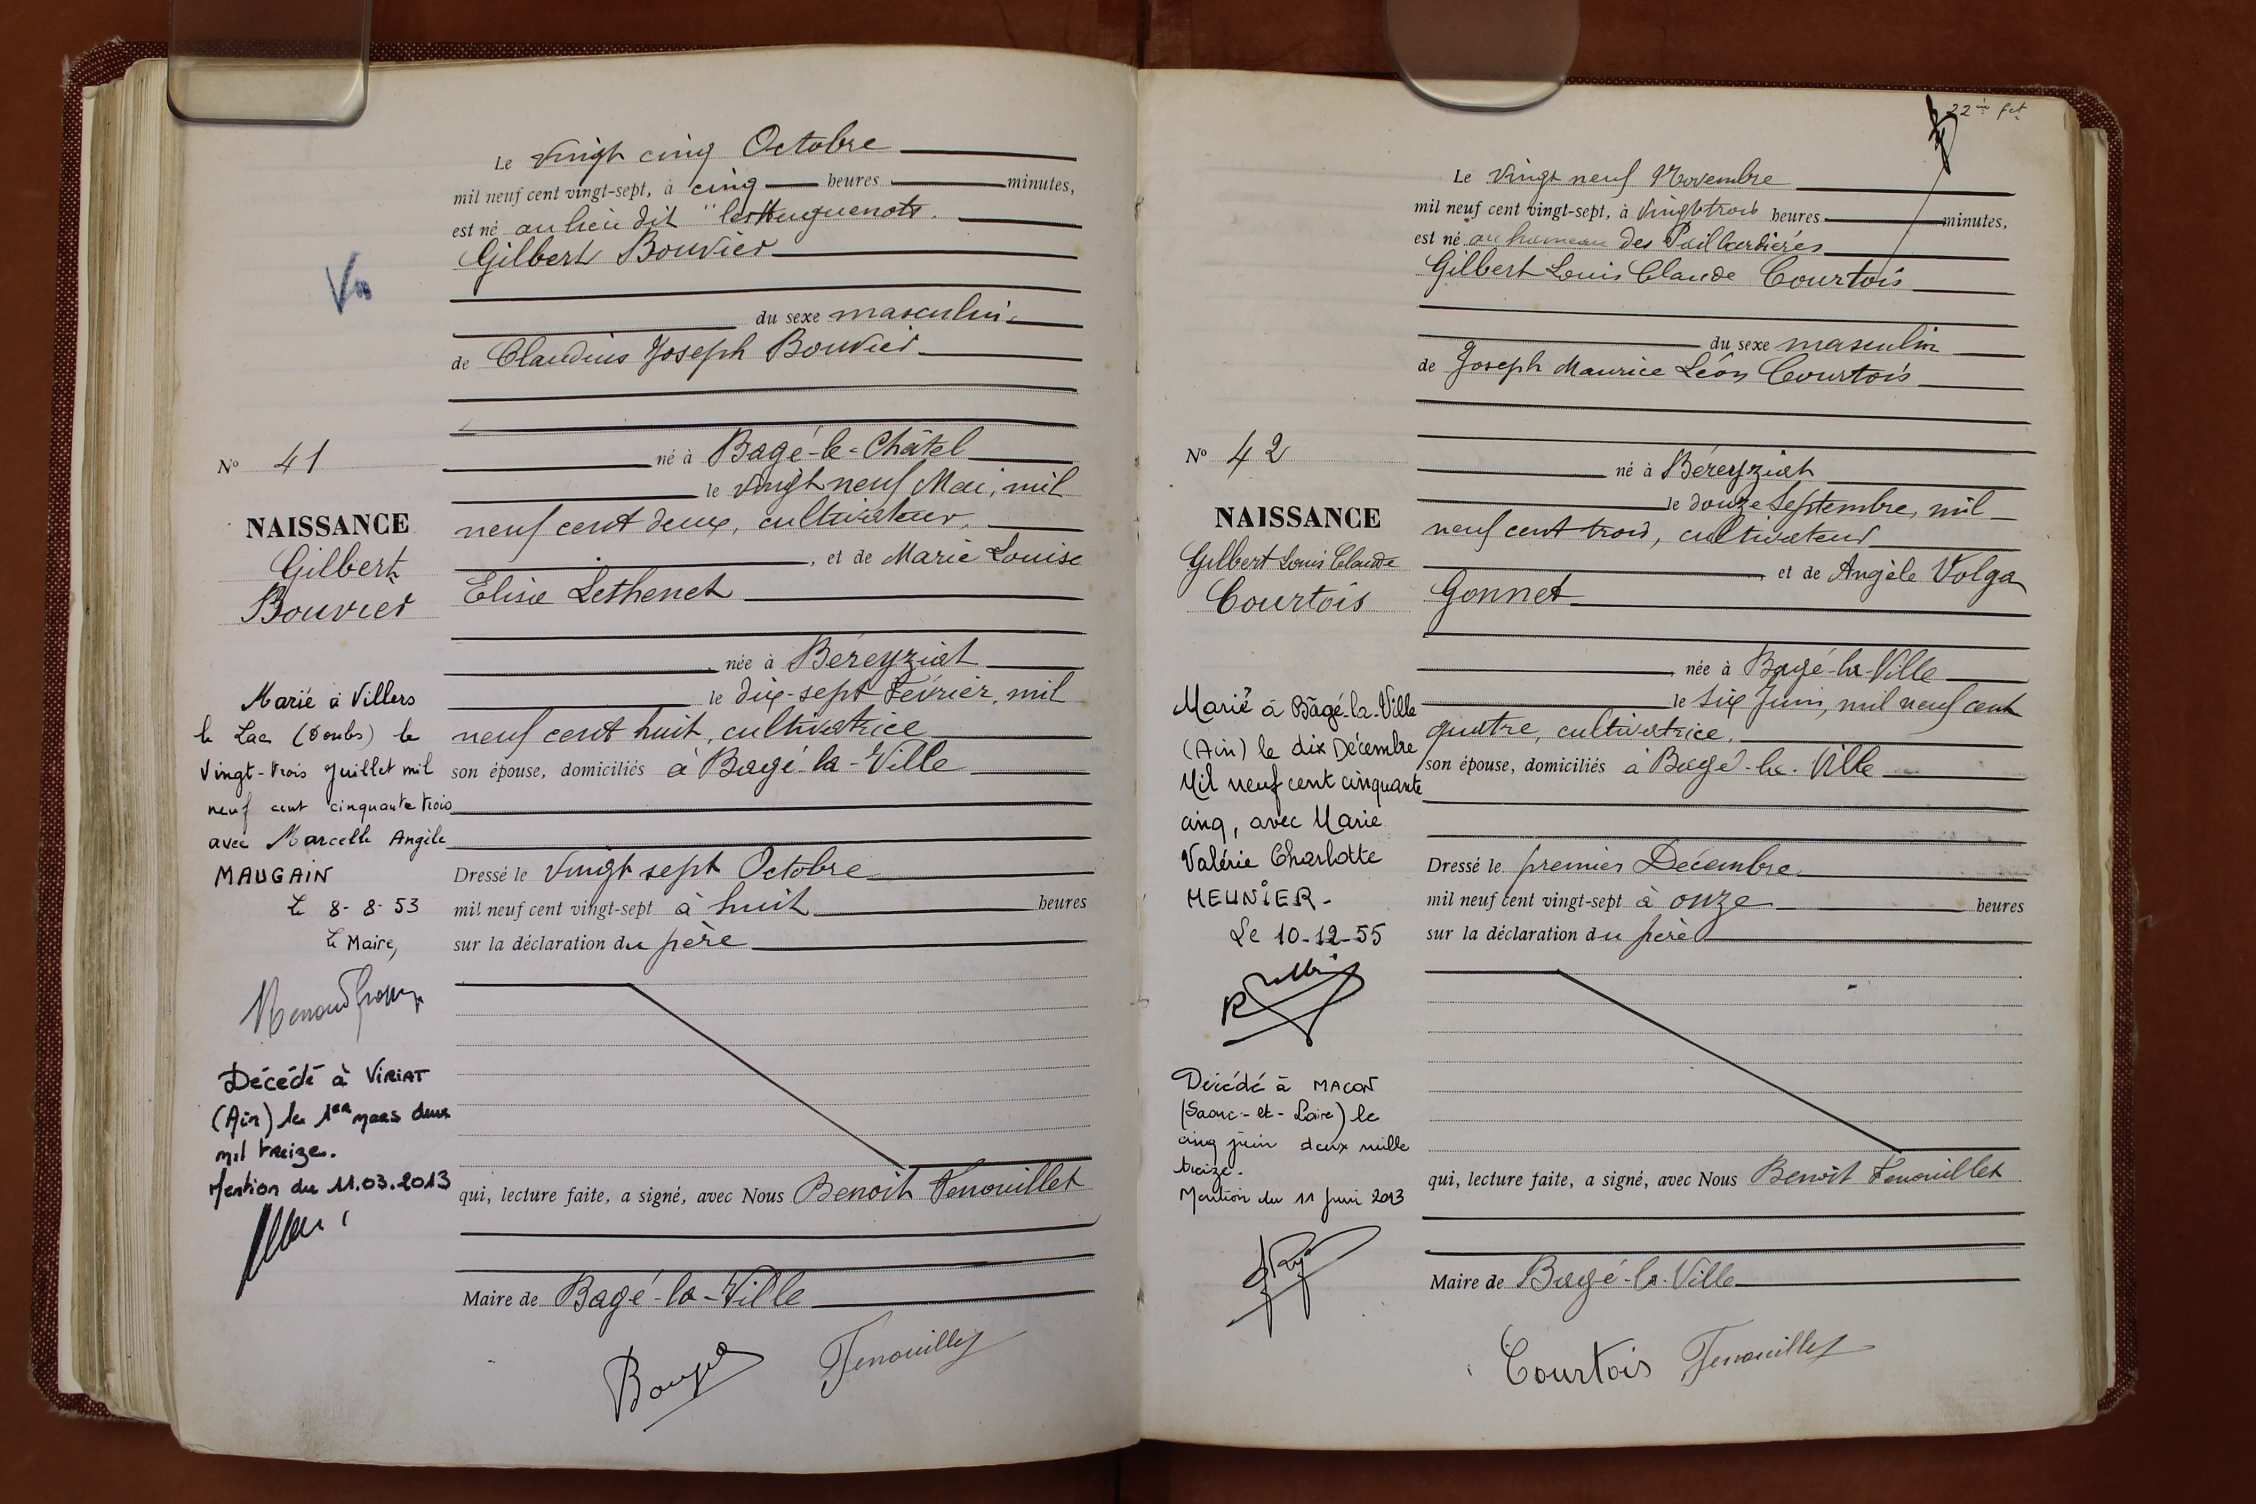 Le vingt cinq Octobre
mil neuf cent vingt-sept, à cinq heures minutes,
est né au lieu dit "les Huguenots.
Gilbert Bouvier
du sexe masculin
de Claudius Joseph Bouvier
né à Bagé-le-Châtel
le vingt neuf Mai, mil
neuf cent deux, cultivateur,
, et de Marie Louise
Elisa Lethenet
, née à Béreyziat
le dix-sept Février, mil
neuf cent huit, cultivatrice
son épouse, domiciliés à Bagé-la-Ville
Dressé le vingt sept Octobre
mil neuf cent vingt-sept à huit heures
sur la déclaration du père
qui, lecture faite, a signé, avec Nous Benoit Fenouillet
Maire de Bagé-la-Ville
Fenouillet
Nº 41
NAISSANCE
Gilbert
Bouvier
Marié à Villers
le Lac (Doubs) le
Vingt-trois Juillet mil
neuf cent cinquante trois
avec Marcelle Angèle
MAUGAIN
Le 8-8-53
Le Maire,
Décédé à VIRIAT
(Ain) le 1er mars deux
mil treize.
Mention du 11.03.2013
22
Le vingt neuf Novembre
mil neuf cent vingt-sept, à vingt trois heures minutes,
est né au hameau des
Gilbert Louis Claude Courtois
du sexe masculin
de Joseph Maurice Léon Courtois
né à Béreyziat
le douze Septembre, mil
neuf cent trois, cultivateur
et de Angèle Volga
Gonnet
, née à Bagé-la-Ville
le six Juin, mil neuf cent
quatre, cultivatrice,
son épouse, domiciliés à Bagé-la-Ville
Dressé le premier Décembre
mil neuf cent vingt-sept à onze heures
sur la déclaration du père
qui, lecture faite, a signé, avec Nous Benoît Fenouillet
Maire de Bagé-la-Ville
Courtois Fenouillet
Nº 42
NAISSANCE
Gilbert Louis Claude
Courtois
Marié à Bâgé-la-Ville
(Ain) le dix Décembre
Mil neuf cent cinquante
cinq, avec Marie
Valérie Charlotte
MEUNIER-
Le 10-12-55
Décédé à MACON
(Saône-et-Loire) le
cinq juin deux mille
treize.
Mention du 11 Juin 2013